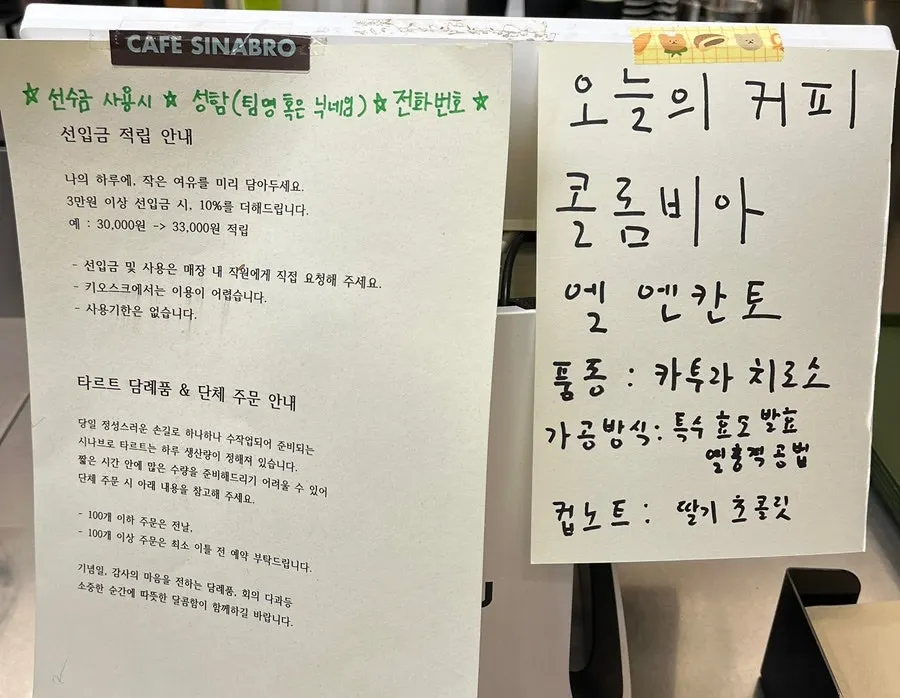 CAFE SINABRO
☆ 선수금 사용시 ☆ 성함(팀명 혹은 닉네임) ☆ 전화번호 ☆
선입금 적립 안내
나의 하루에, 작은 여유를 미리 담아두세요.
3만원 이상 선입금 시, 10%를 더해드립니다.
예 : 30,000원 -> 33,000원 적립
- 선입금 및 사용은 매장 내 직원에게 직접 요청해 주세요.
- 키오스크에서는 이용이 어렵습니다.
- 사용기한은 없습니다.
타르트 답례품 & 단체 주문 안내
당일 정성스러운 손길로 하나하나 수작업되어 준비되는
시나브로 타르트는 하루 생산량이 정해져 있습니다.
짧은 시간 안에 많은 수량을 준비해드리기 어려울 수 있어
단체 주문 시 아래 내용을 참고해 주세요.
- 100개 이하 주문은 전날,
- 100개 이상 주문은 최소 이틀 전 예약 부탁드립니다.
기념일, 감사의 마음을 전하는 답례품, 회의 다과등
소중한 순간에 따뜻한 달콤함이 함께하길 바랍니다.
오늘의 커피
콜롬비아
엘 엔칸토
품종 : 카투라 치로소
가공방식 : 특수 효모 발효
열충격 공법
컵노트 : 딸기 초콜릿